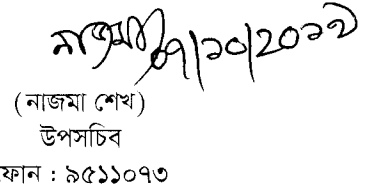 নাজমা ০৭/১০/২০১৯
(নাজমা শেখ)
উপসচিব
ফোন : ৯৫১১০৭৩